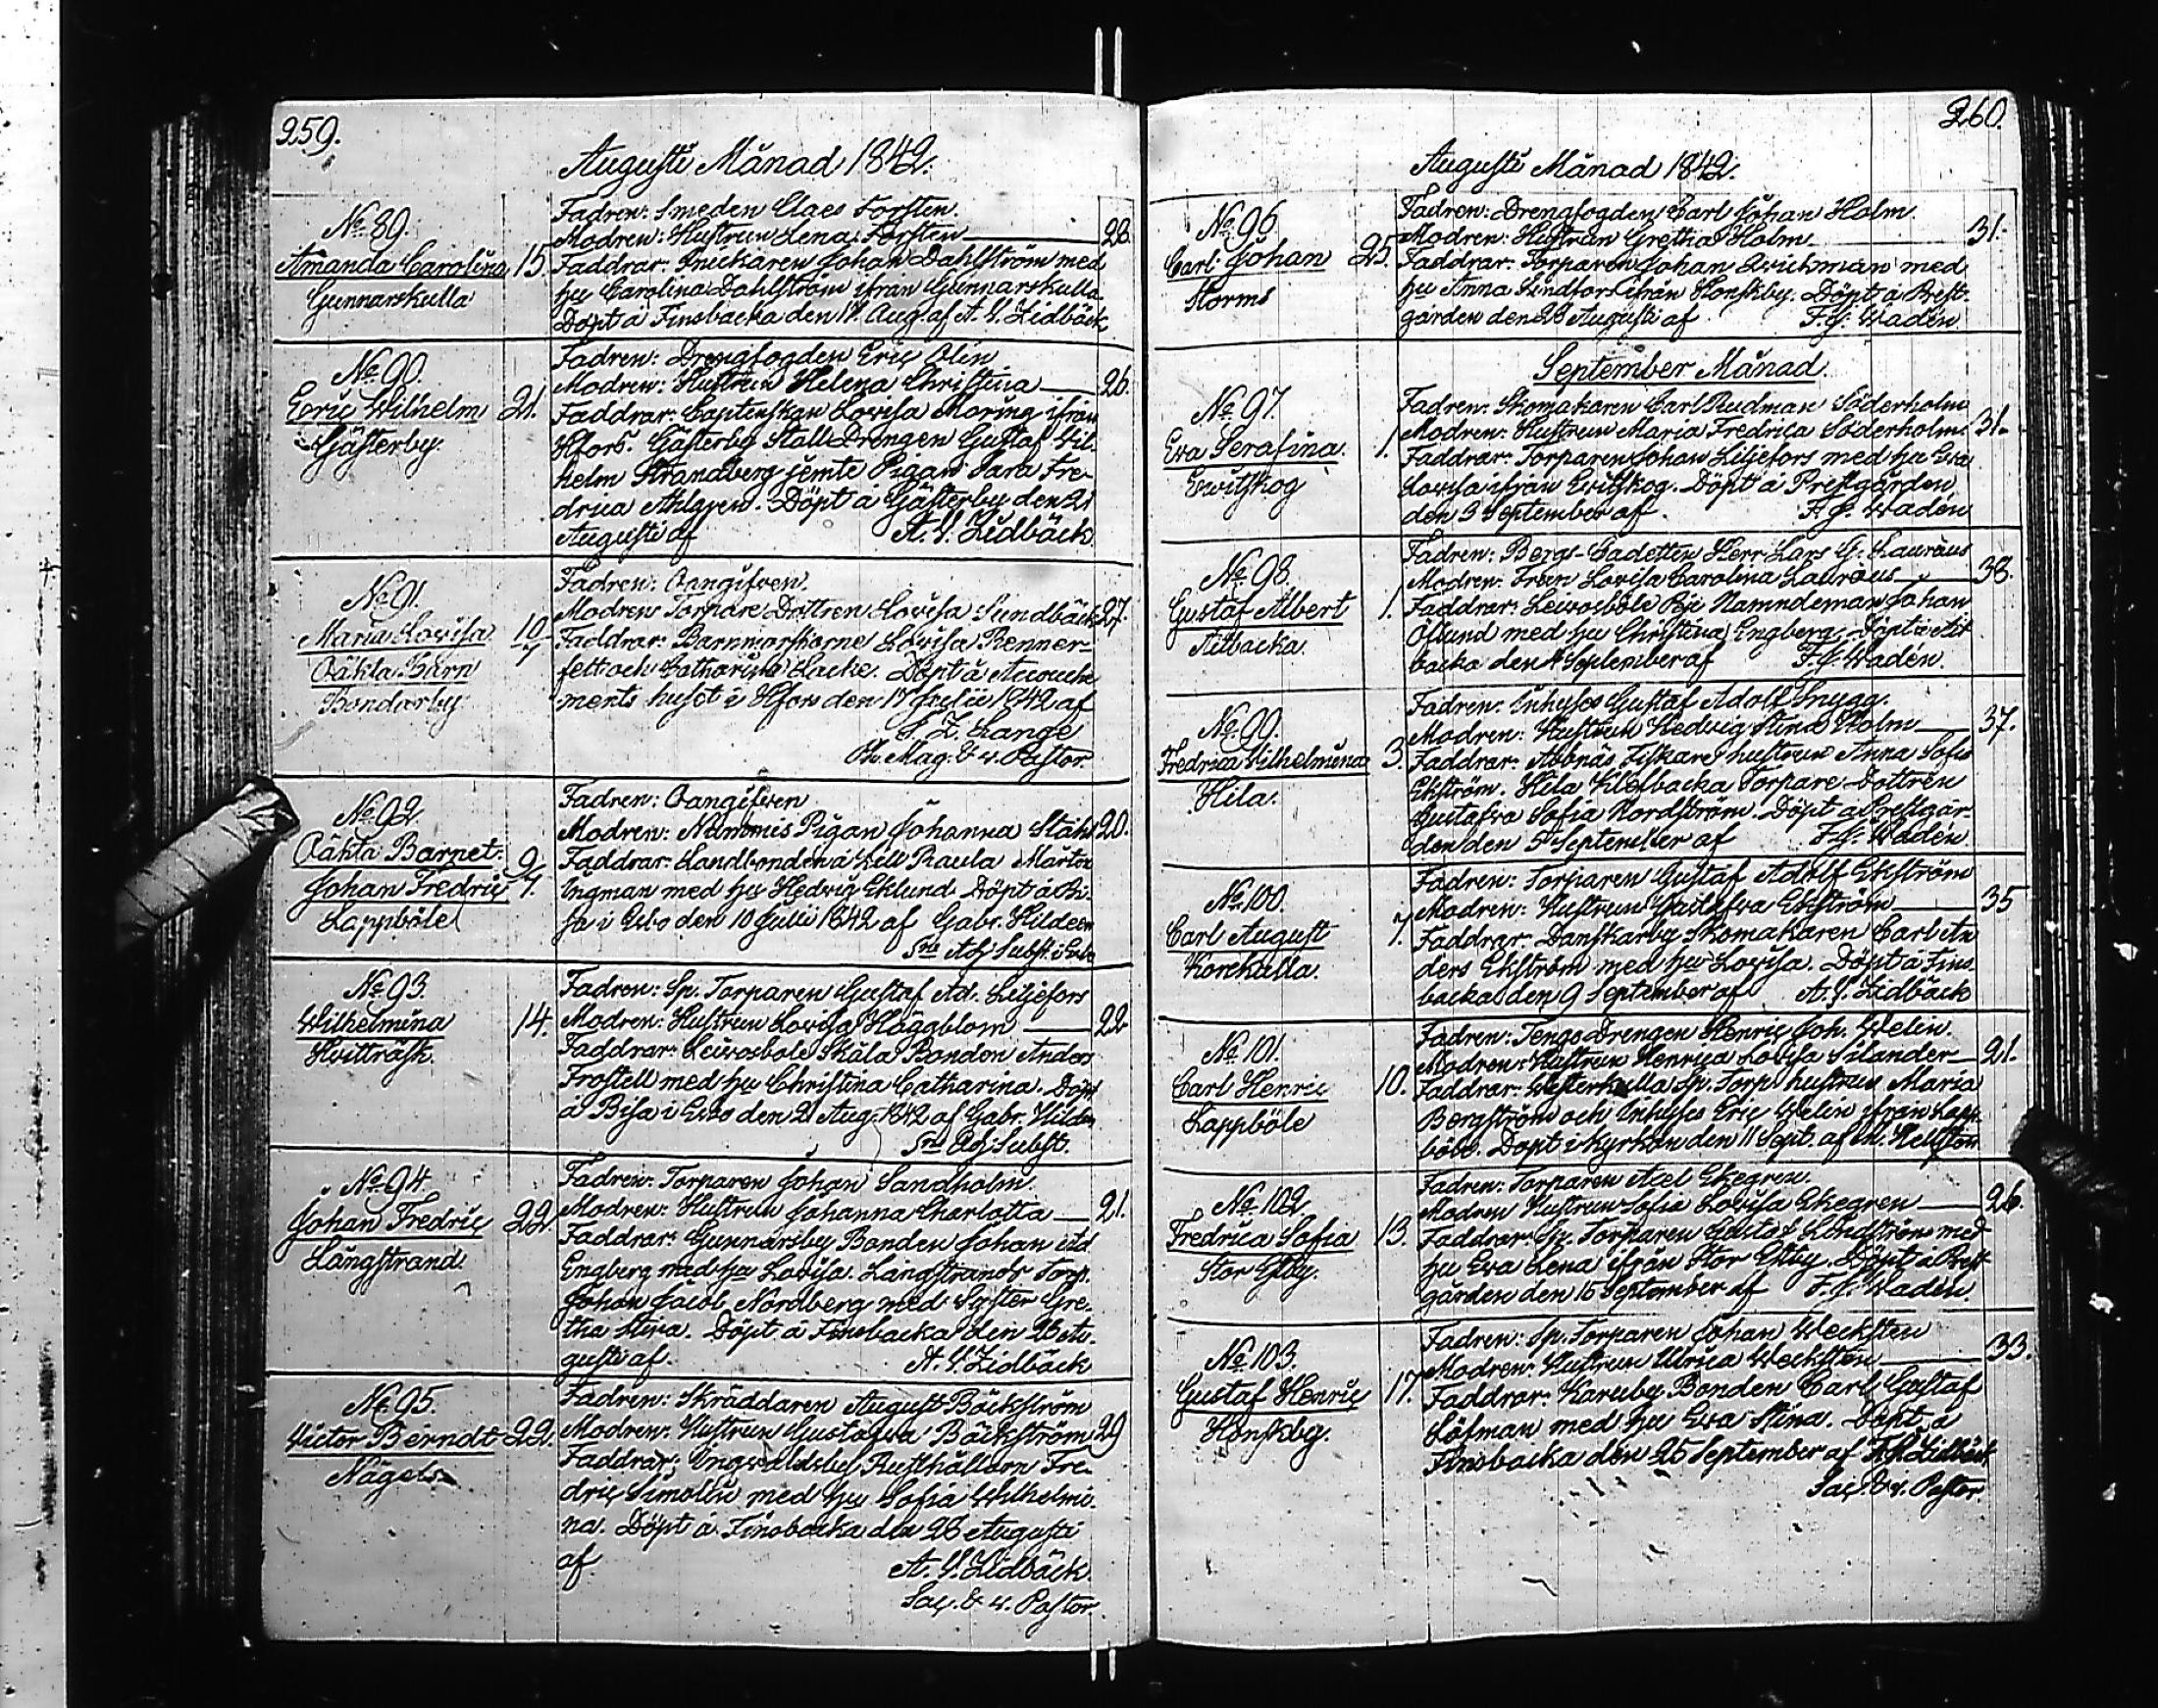 259.
Augusti Månad 1842.
No 89.
Amanda Carolina 15.
Gunnarskulla
Fadren: Smeden Claes Forsten.
Modren: Hustrun Lena Forsten 28.
Faddrar: Snickaren Johan Dahlström med
hu Carolina Dahlström ifrån Gunnarskulla
Döpt å Finsbacka den 17 Aug. af A. V. Lidbäck
No 90.
Eric Wilhelm 21.
Gästerby.
Fadren: Drengfogden Eric Olin
Modren: Hustrun Helena Christina 26.
Faddrar: Captenskan Lovisa Moring ifrån
Hfors. Gästerby Stall Drengen Gustaf Wil-
helm Strandberg jemte Pigan Sara Fre-
drica Ahlgren. Döpt å Gästerby den 21
Augusti af A. V. Lidbäck
No 91.
Maria Lovisa 10/7
Oäkta Barn
Bondarby.
Fadren: Oangifven.
Modren Torpare Dottren Lovisa Sundbäck 27.
Faddrar: Barnmorskorne Lovisa Renner-
felt och Catharina Lacke. Döpt å Accouche
ments huset i Hfors den 17 Julii 1842 af
J. Z. Lange
Ph. Mag. & v. Pastor.
No 92.
Oäkta Barnet. 9/7.
Johan Fredric
Lappböle
Fadren: Oangifven
Modren: Nämmis Pigan Johanna Ståhl 20.
Faddrar: Landbonden å Lill Raula Mårten
Ingman med hu Hedvig Eklund. Döpt å Bi-
sa i Esbo den 10 Julii 1842 af Gabr. Hildeen
Sni Adj. Subst. i Esbo
No 93.
Wilhelmina 14.
Hvitträsk.
Fadren: Sp. Torparen Gustaf Ad. Liljefors
Modren: Hustrun Lovisa Häggblom 22
Faddrar: Leivosböle Skåla Bonden Anders
Frostell med hu Christina Catharina. Döpt
å Bisa i Esbo den 21 Aug. 1842 af Gabr. Hildeen
Sni Adj. Subst.
No 94.
Johan Fredric 22
Långstrand.
Fadren: Torparen Johan Sandholm.
Modren: Hustrun Johanna Charlotta 21.
Faddrar: Gunnarsby Bonden Johan Ad.
Engberg med hu Lovisa. Långstrands Torp.
Johan Jacob Nordberg med Syster Gre-
tha Stina. Döpt å Finsbacka den 28 Au-
gusti af. A. V. Lidbäck
No 95.
Victor Berndt 22.
Nägels
Fadren: Skräddaren August Bäckström
Modren: Hustrun Gustafva Bäckström 29
Faddrar: Ingvaldsby Rusthållaren Fre-
dric Simolin med hu Sofia Wilhelmi-
na. Döpt å Finsbacka den 28 Augusti
af. A. V. Lidbäck.
Sac. & v. Pastor.
260.
Augusti Månad 1842.
No 96.
Carl Johan 25.
Storms
Fadren: Drengfogden Carl Johan Holm.
Modren: Hustrun Gretha Holm 31.
Faddrar: Torparen Johan Qvickman med
hu Anna Lindfors ifrån Honskby. Döpt å Prest-
gården den 28 Augusti af F. G. Wadén.
September Månad.
No 97.
Eva Serafina. 1.
Evitskog
Fadren: Skomakaren Carl Rudman Söderholm
Modren: Hustrun Maria Fredrica Söderholm. 31.
Faddrar: Torparen Johan Liljefors med hu Eva
Lovisa ifrån Evitskog. Döpt å Prestgården
den 3 September af F. G. Wadén
No 98.
Gustaf Albert 1.
Aitbacka.
Fadren: Bergs-Cadetten Herr Lars G. Lauræus
Modren: Frun Lovisa Carolina Lauræus 38.
Faddrar: Leivosböle By Nämndeman Johan
Öflund med hu Christina Engberg. Döpt i Ait
backa den 4 September af F. G. Wadén.
No 99.
Fredrica Wilhelmina 3.
Hila.
Fadren: Inhyses Gustaf Adolf Snygg.
Modren: Hustrun Hedvig Stina Holm 37.
Faddrar: Abbnäs Fiskare hustrun Anna Sofia
Ekström. Hila Klefbacka Torpare Dottren
Gustafva Sofia Nordström. Döpt å Prestgår-
den den 5 September af F. G. Wadén.
No 100.
Carl August 7.
Korckulla.
Fadren: Torparen Gustaf Adolf Ekström
Modren: Hustrun Gustafva Ekström 35
Faddrar: Danskarby Skomakaren Carl An
ders Ekström med hu Lovisa. Döpt å Fins
backa den 9 September af A. V. Lidbäck
No 101.
Carl Henric 10.
Lappböle
Fadren: Tengs Drengen Henric Joh. Welin.
Modren: Hustrun Henrica Lovisa Silander 21.
Faddrar: Westerkulla Sp. Torp. hustrun Maria
Bergström och Inhyses Eric Welin ifrån Lapp-
böle. Döpt i kyrkan den 11 Sept. af M. Hellsten
No 102.
Fredrica Sofia 13.
Stor Ebby.
Fadren: Torparen Axel Ekegren.
Modren Hustrun Sofia Lovisa Ekegren 26.
Faddrar: Sp. Torparen Gustaf Lindström med
hu Eva Lena ifrån Stor Ebby. Döpt å Prest
gården den 16 September af F. G. Wadén.
No 103.
Gustaf Henric 17.
Honskby.
Fadren: Sp. Torparen Johan Wecksten
Modren: Hustrun Ulrica Wecksten 33.
Faddrar: Karuby Bonden Carl Gustaf
Löfman med hu Eva Stina. Döpt å
Finsbacka den 25 September af A. V. Lidbäck
Sac. & v. Pastor.